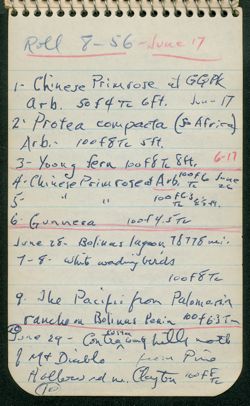 Roll 8-56 - June 17
1- Chinese Primrose at GGPk
Arb. 50 f4 Tc 6ft. Jun-17
2- Protea compacta (So Africa)
Arb. 100 f8 Tc 5ft.
3- Young fern 100 f8 Tc 8ft. 6-17
4- Chinese Primrose at Arb. 100 f6 Tc June
5- " " 100 f6.3 Tc
6- Gunnera 100 f4.5 Tc
June 28- Bolinas Lagoon mi.
7-8- white wading birds
100 f8 Tc
9. The Pacific from Palomarin
ranch on Bolinas Penin 100 f6.3 Tc
June 29- hills north
of Mt Diablo - from Pine
Hollow rd w. Clayton 100 f8 Tc
10